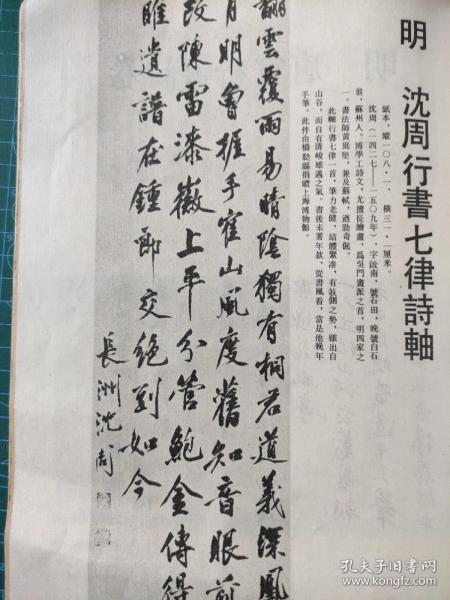 明 沈周行書七律詩軸
紙本，縱一〇八·一，橫三一·一厘米。
沈周（一四二七——一五〇九年），字啟南，號石田，晚號白石
翁，蘇州人。博學工詩文，尤擅長繪畫，爲吳門畫派之首，明四家之
一。書法師黃庭堅，兼及蘇軾，遒勁奇倔。
此軸行書七律一首，筆力老健，結體緊湊，有攲側之勢，雖出自
山谷，而自有清峻雄邁之氣。書後未署年款，從書風看，當是他晚年
手筆。此件由楊聰縣捐贈上海博物館。
翻雲覆雨易晴陰獨有桐君道義深鳳
月明魯握手霍山風度舊知音眼前
改陳雷漆徽上平分管鮑金傳得
睢遺譜在鍾郎交絕到如今
長洲沈周
孔夫子旧书网